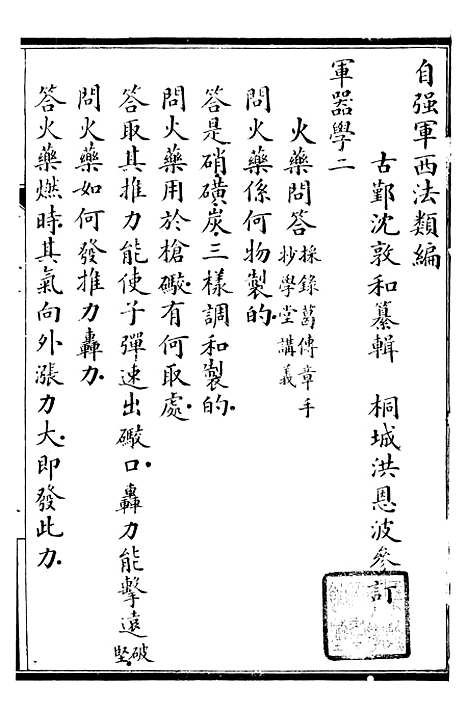 自强軍西法類編
古鄞沈敦和纂輯　桐城洪恩波參訂
軍器學二
火藥問答採錄葛傳章手抄學堂講義
問火藥係何物製的
答是硝磺炭三樣調和製的
問火藥用於槍礮有何取處
答取其推力能使子彈速出礮口轟力能擊遠破堅
問火藥如何發推力轟力
答火藥燃時其氣向外漲力大即發此力